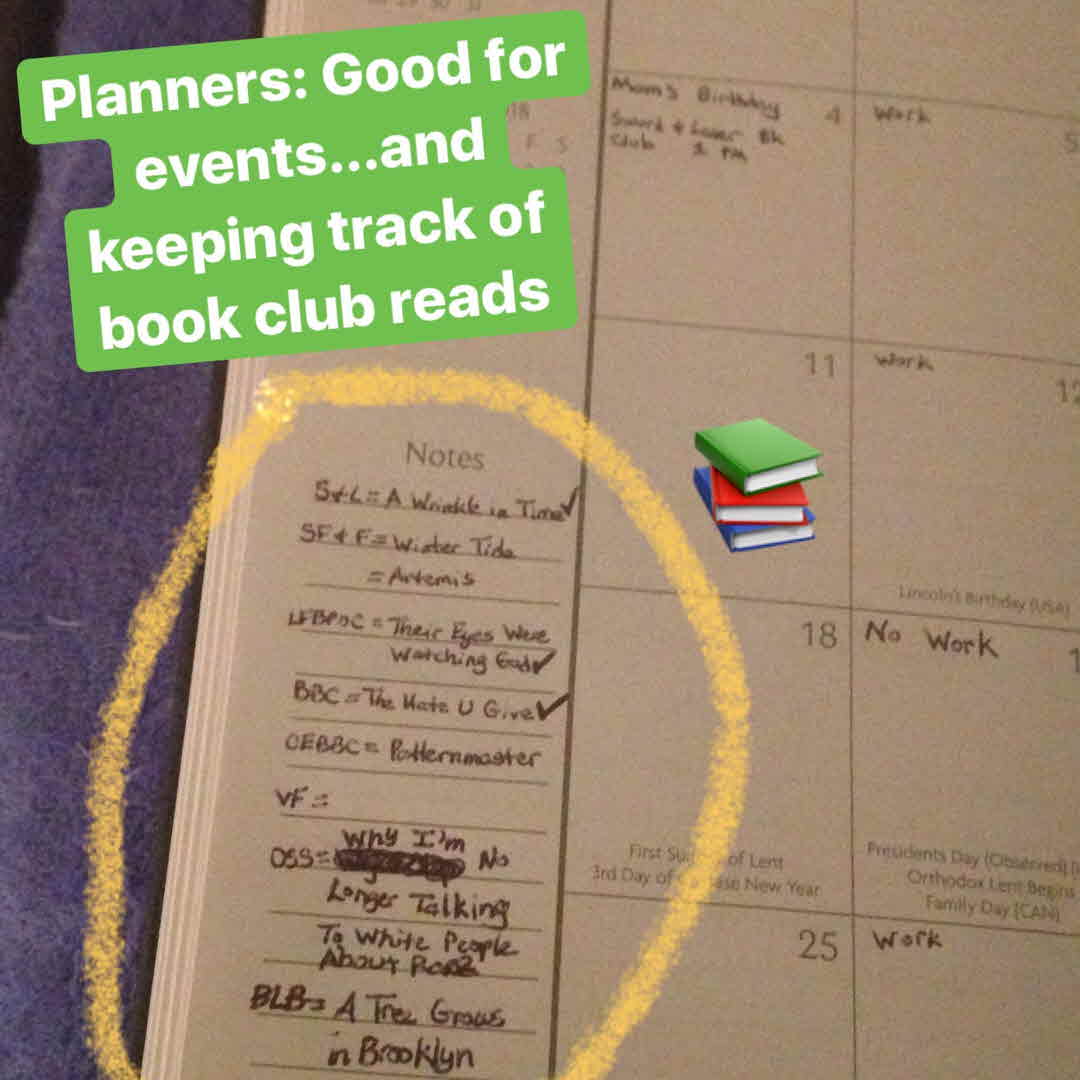 Planners: Good for
events...and
keeping track of
book club reads
29 30 31
18
F S
Mom's Birthday 4
Sword & Laser Bk
Club 2 PM
Work
5
11
Work
12
Lincoln's Birthday (USA)
18
No Work
1
First Su of Lent
3rd Day of New Year
Presidents Day (Observed)
Orthodox Lent Begins
Family Day [CAN]
25
Work
Notes
S&L = A Wrinkle in Time ✓
SF & F = Winter Tide
= Artemis
= Their Eyes Were
Watching God ✓
BBC = The Hate U Give ✓
OEBBC = Patternmaster
VF =
Why I'm
OSS = No
Longer Talking
To White People
About Race
BLB = A Tree Grows
in Brooklyn